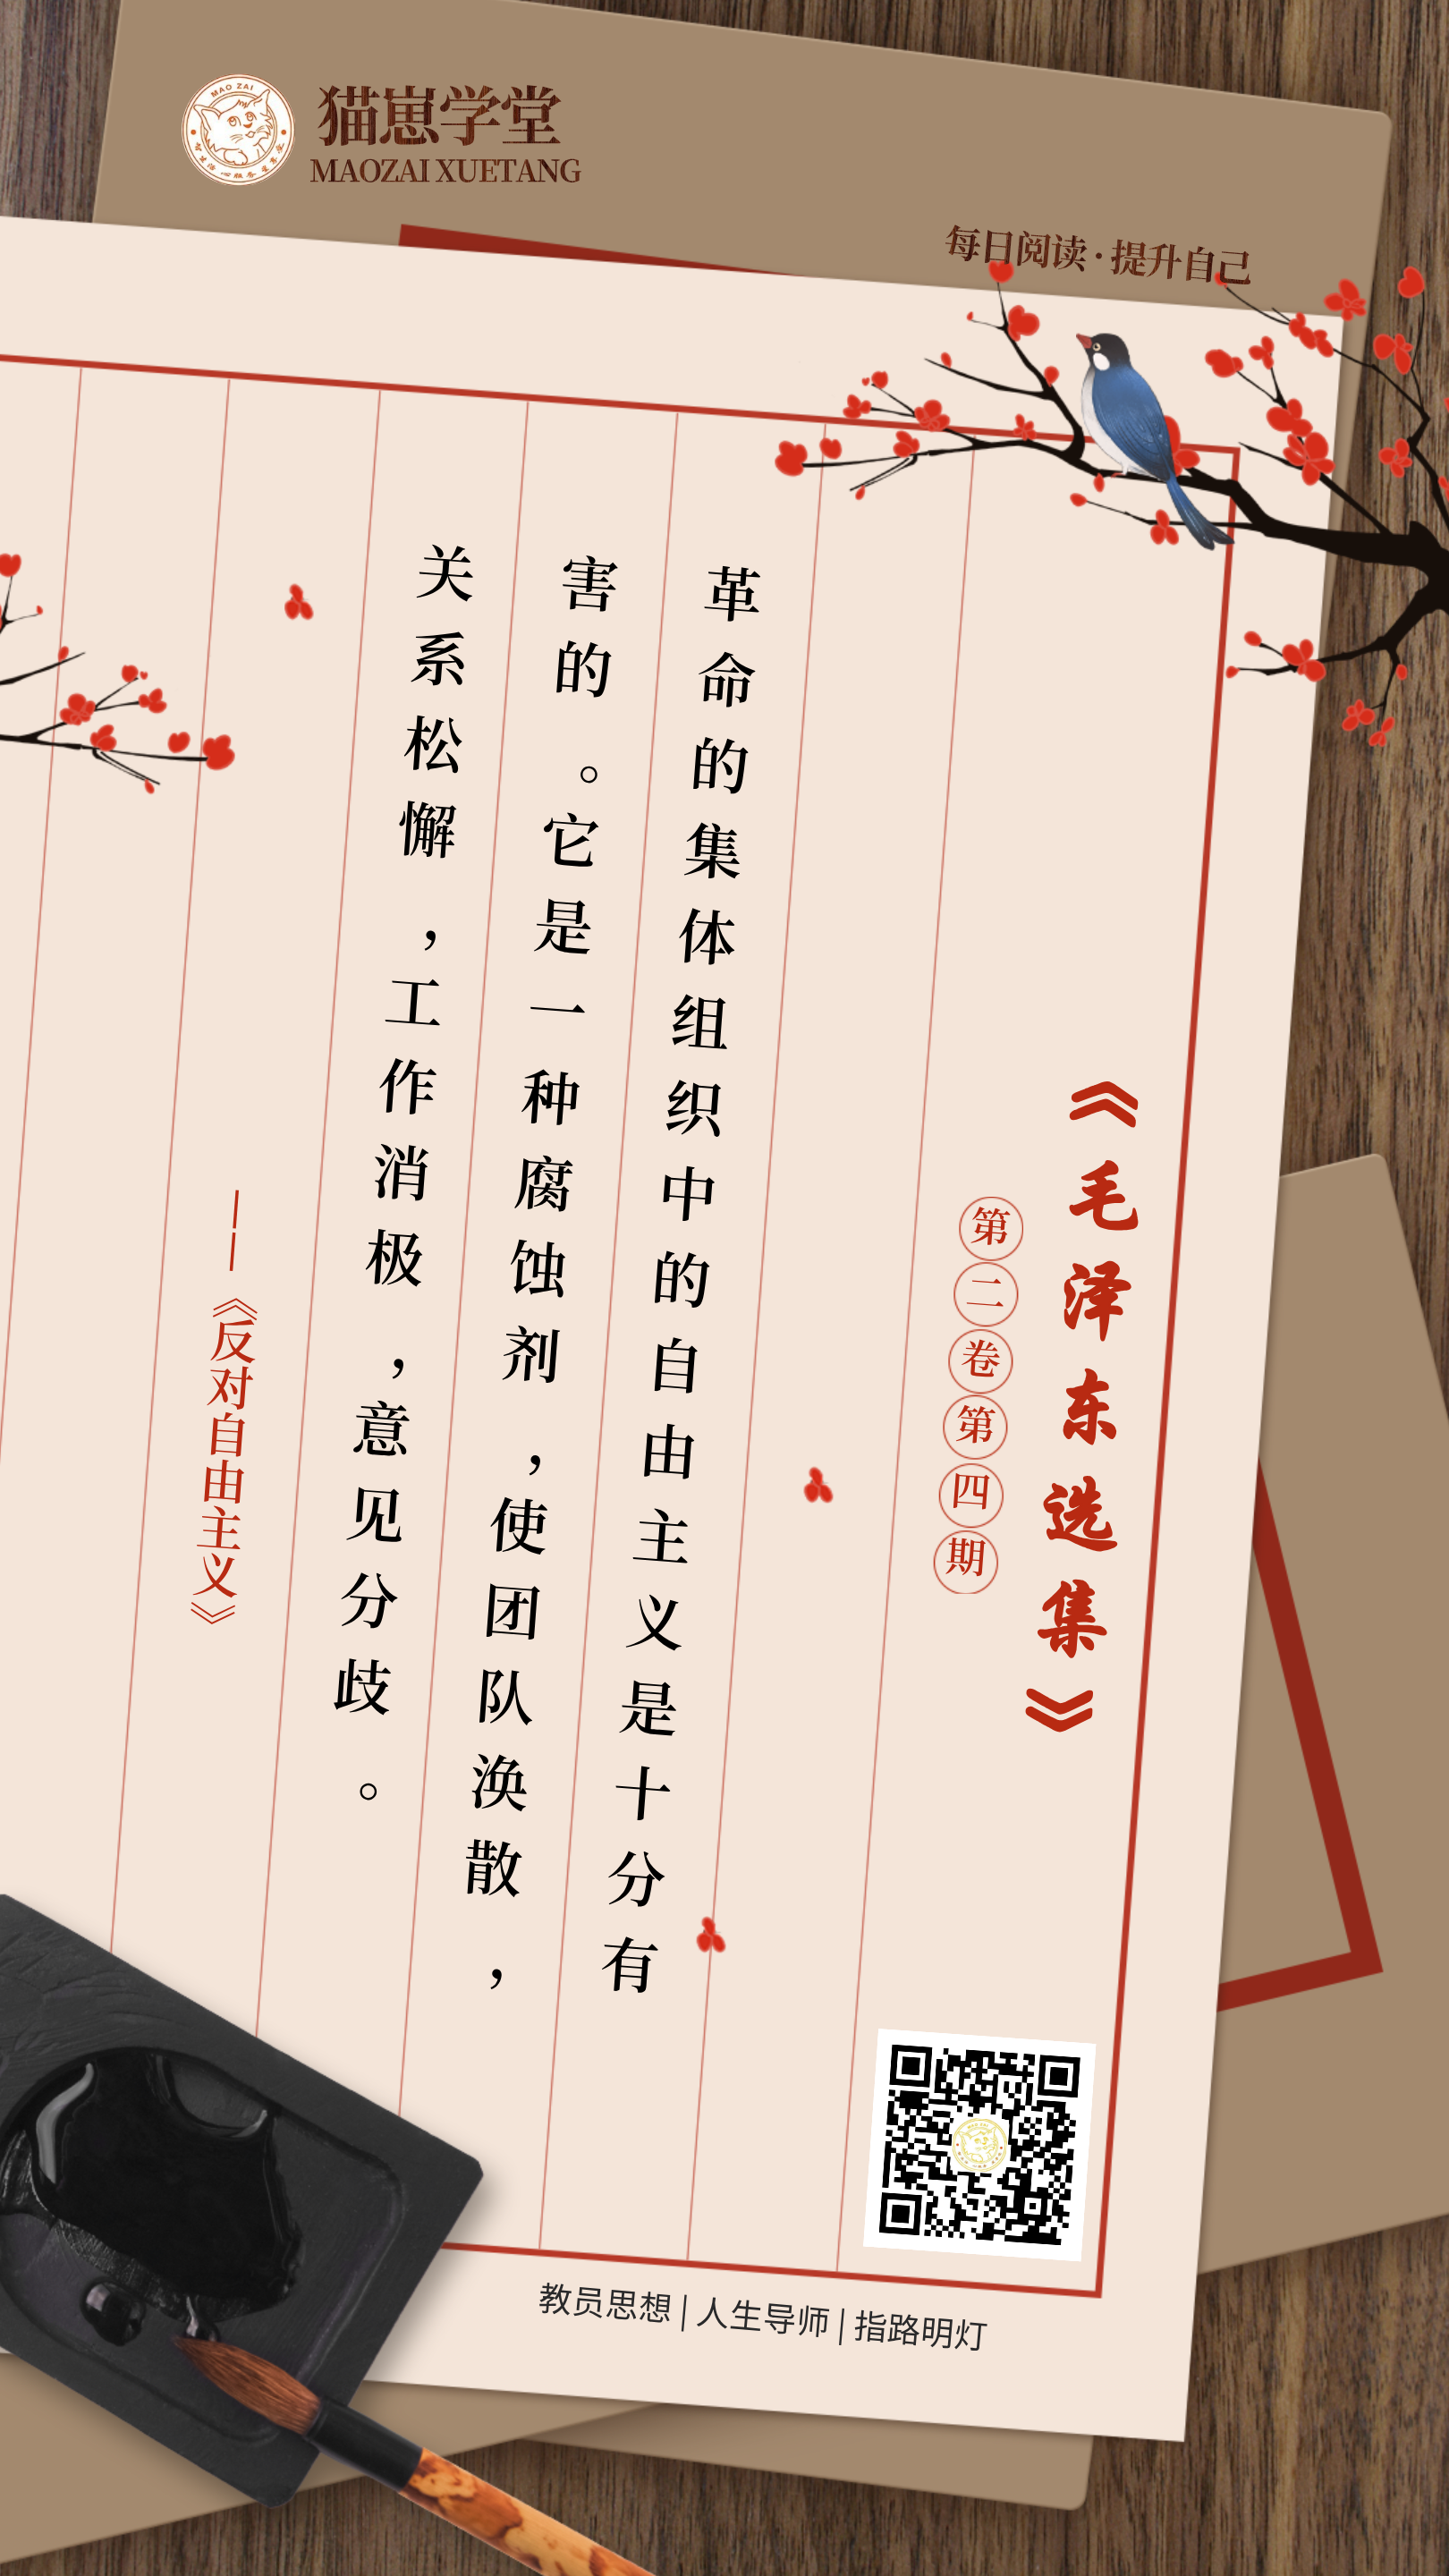 猫崽学堂
MAOZAI XUETANG
MAO ZAI
每日阅读·提升自己
《毛泽东选集》
第二卷第四期
革命的集体组织中的自由主义是十分有
害的。它是一种腐蚀剂，使团队涣散，
关系松懈，工作消极，意见分歧。
——《反对自由主义》
教员思想|人生导师|指路明灯